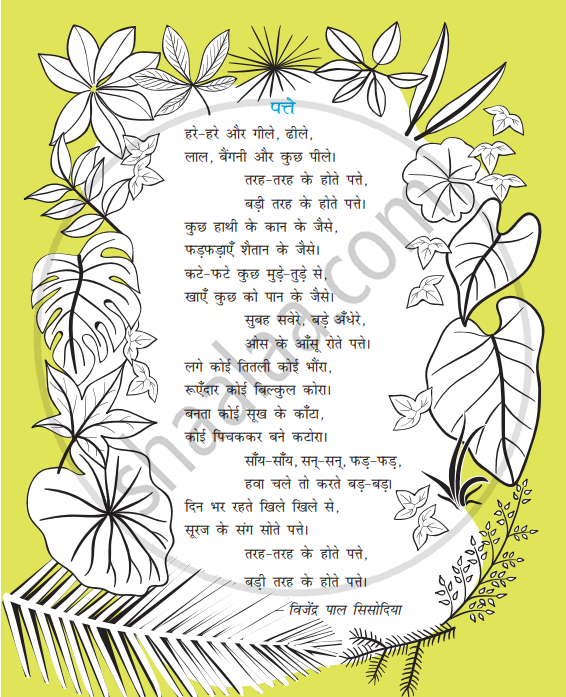 पत्ते
हरे-हरे और गीले, ढीले,
लाल, बैंगनी और कुछ पीले।
तरह-तरह के होते पत्ते,
बड़ी तरह के होते पत्ते।
कुछ हाथी के कान के जैसे,
फड़फड़ाएँ शैतान के जैसे।
कटे-फटे कुछ मुड़े-तुड़े से,
खाएँ कुछ को पान के जैसे।
सुबह सवेरे, बड़े अँधेरे,
ओस के आँसू रोते पत्ते।
लगे कोई तितली कोई भौंरा,
रूएँदार कोई बिल्कुल कोरा।
बनता कोई सूख के काँटा,
कोई पिचककर बने कटोरा।
साँय-साँय, सन्-सन्, फड़्-फड़्,
हवा चले तो करते बड़-बड़।
दिन भर रहते खिले खिले से,
सूरज के संग सोते पत्ते।
तरह-तरह के होते पत्ते,
बड़ी तरह के होते पत्ते।
– विजेंद्र पाल सिसोदिया
shaalaa.com